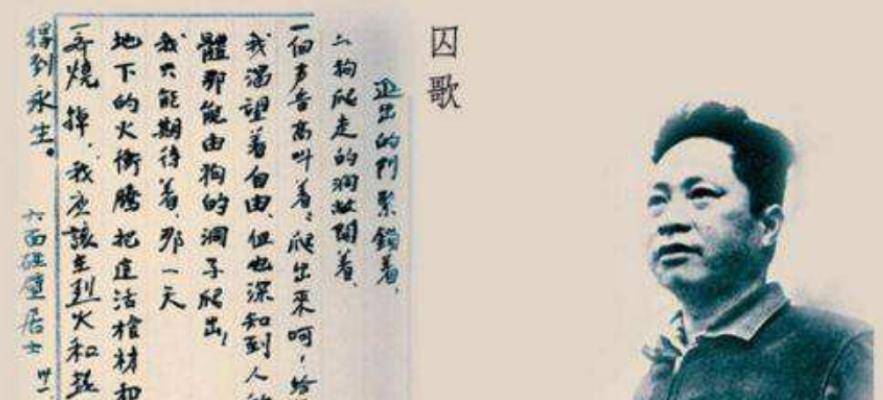 囚歌
进出的門緊鎖着，
为狗爬走的洞敞開着、
一個声音高叫着：爬出来呵！给
我渴望着自由、但也深知到人的
體那能由狗的洞子爬出！
我只能期待着、那一天
地下的火衝腾把這活棺材和
一齐燒掉、我应該在烈火和熱
得到永生。
六面碰壁居士 卅一